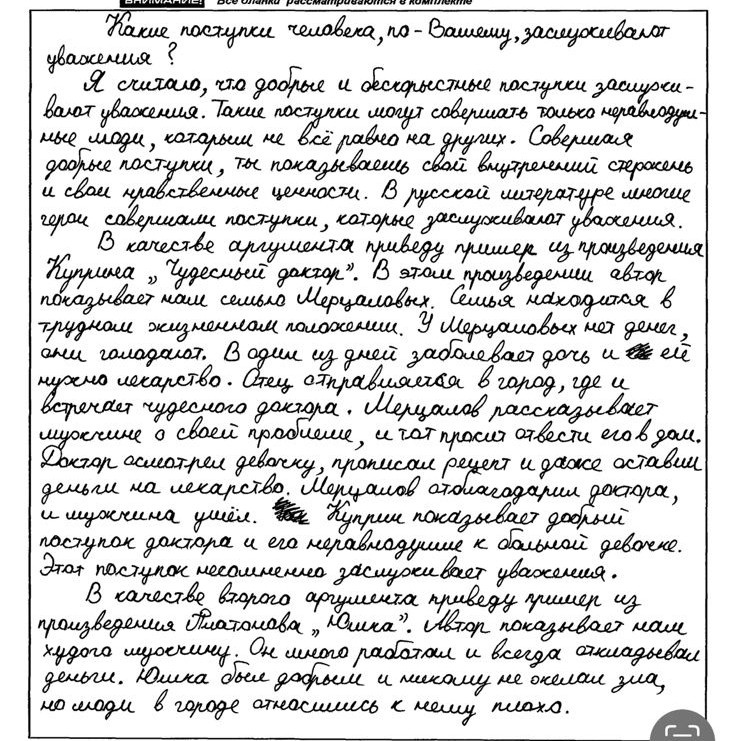 ВНИМАНИЕ! Все бланки рассматриваются в комплекте
Какие поступки человека, по-Вашему, заслуживают
уважения?
Я считаю, что добрые и бескорыстные поступки заслужи-
вают уважения. Такие поступки могут совершать только неравнодуш-
ные люди, которым не всё равно на других. Совершая
добрые поступки, ты показываешь свой внутренний стержень
и свои нравственные ценности. В русской литературе многие
герои совершали поступки, которые заслуживают уважения.
В качестве аргумента приведу пример из произведения
Куприна „Чудесный доктор". В этом произведении автор
показывает нам семью Мерцаловых. Семья находится в
трудном жизненном положении. У Мерцаловых нет денег,
они голодают. В один из дней заболевает дочь и ей
нужно лекарство. Отец отправляется в город, где и
встречает чудесного доктора. Мерцалов рассказывает
мужчине о своей проблеме, и тот просит отвести его в дом.
Доктор осмотрел девочку, прописал рецепт и даже оставил
деньги на лекарство. Мерцалов отблагодарил доктора,
и мужчина ушёл. Куприн показывает добрый
поступок доктора и его неравнодушие к больной девочке.
Этот поступок несомненно заслуживает уважения.
В качестве второго аргумента приведу пример из
произведения Платонова „Юшка". Автор показывает нам
худого мужчину. Он много работал и всегда откладывал
деньги. Юшка был добрым и никому не желал зла,
но люди в городе относились к нему плохо.